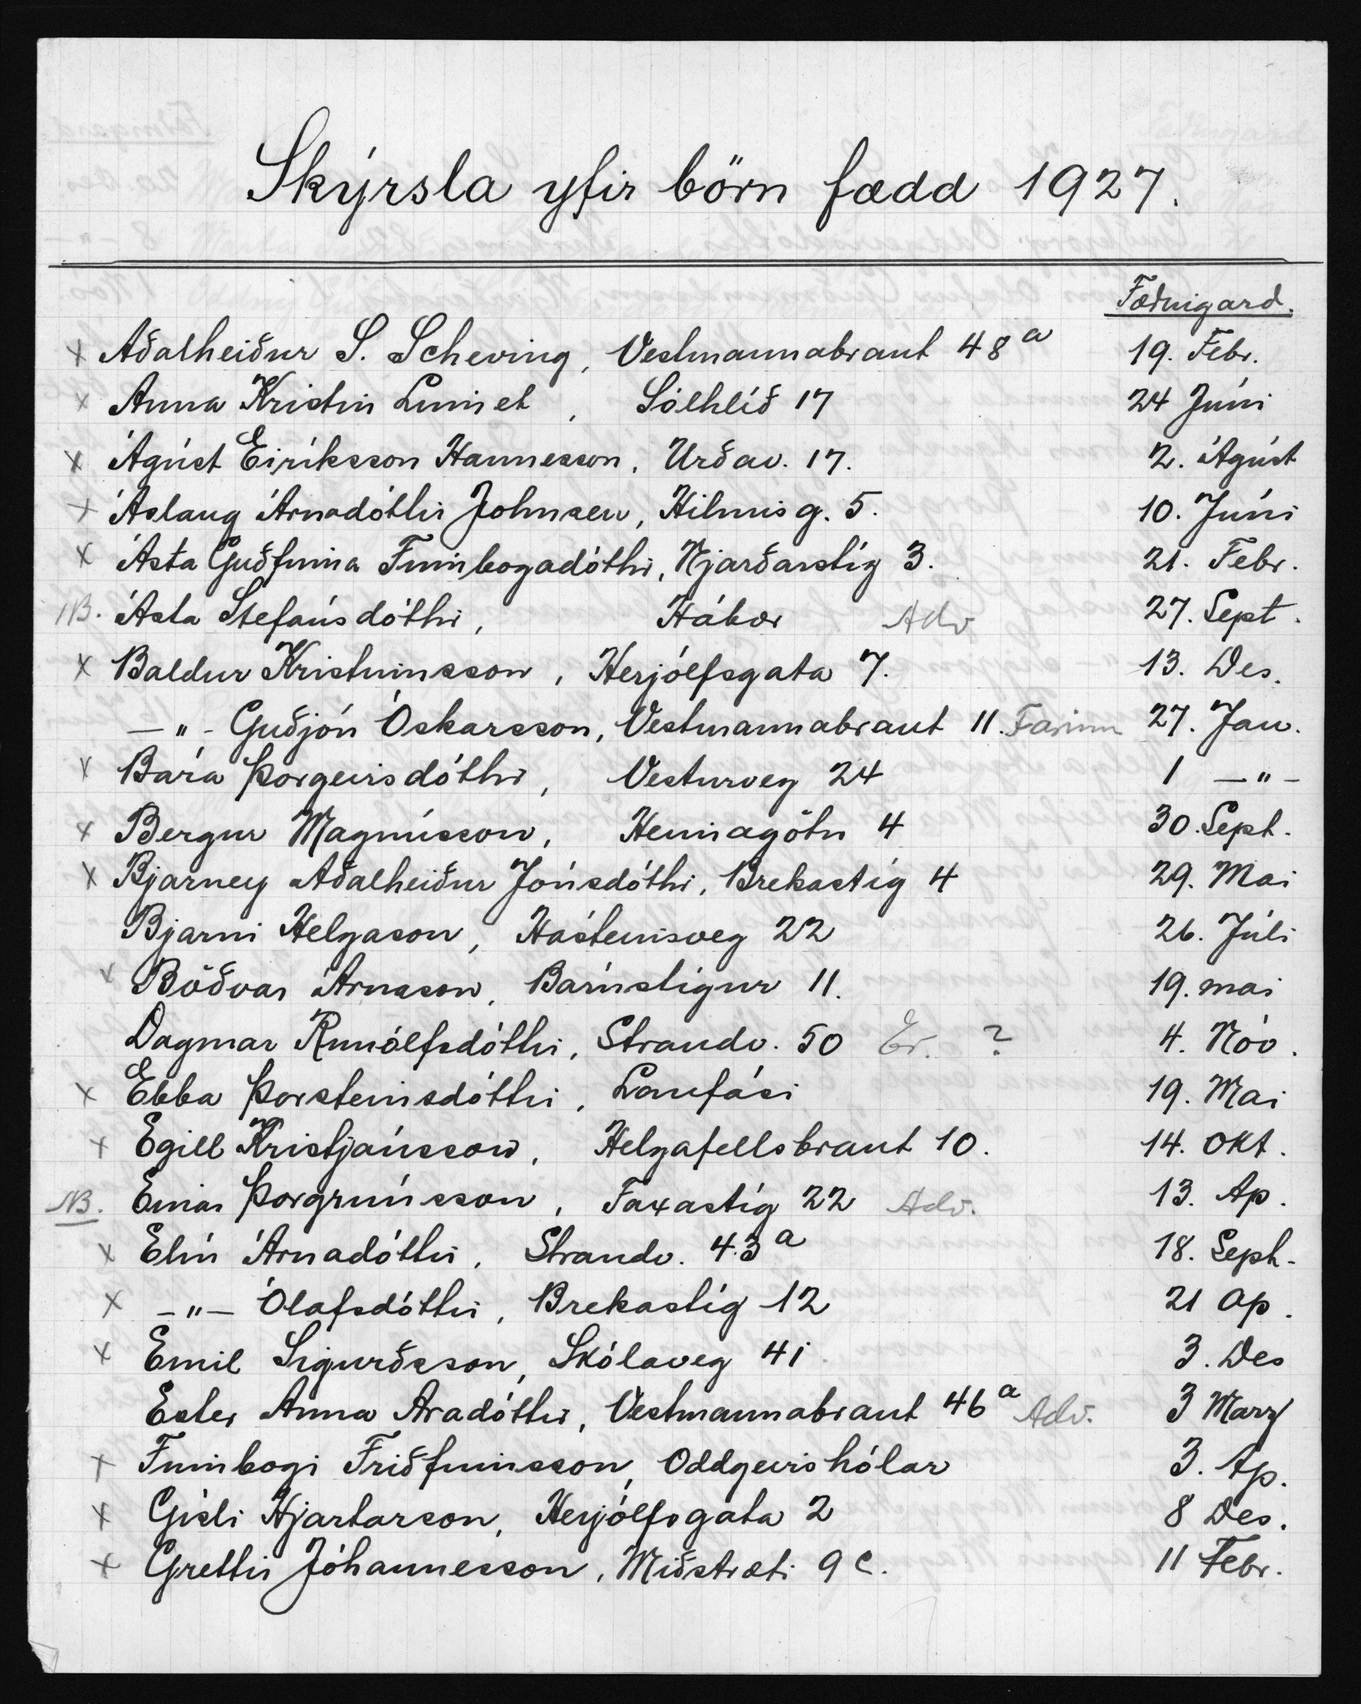 Skýrsla yfir börn fædd 1927.
Fæðnigard.
x Aðalheiður S. Scheving, Vestmannabraut 48 a 19. Febr.
x Anna Kristín Linnet, Sólhlíð 17 24 Júní
x Ágúst Eiríksson Hannesson, Urðav. 17. 2. Ágúst
x Áslaug Árnadóttir Johnsen, Hilmisg. 5. 10. Júní
x Ásta Guðfinna Finnbogadóttir, Njarðarstíg 3. 21. Febr.
NB. Ásta Stefánsdóttir, Hábær Adv. 27. Sept.
x Baldur Kristinsson, Herjólfsgata 7. 13. Des.
—"- Guðjón Óskarsson, Vestmannabraut 11. Farinn 27. Jan.
x Bára Þorgeirsdóttir, Vesturveg 24 1 —"-
x Bergur Magnússon, Heimagötu 4 30. Sept.
x Bjarney Aðalheiður Jónsdóttir, Brekastíg 4 29. Mai
Bjarni Helgason, Hásteinsveg 22 26. Júlí
v Böðvar Árnason, Bárustígur 11. 19. mai
Dagmar Runólfsdóttir, Strandv. 50 Er. ? 4. Nóv.
x Ebba Þorsteinsdóttir, Laufási 19. Mai
x Egill Kristjánsson, Helgafellsbraut 10. 14. Okt.
NB. Einar Þorgrímsson, Faxastíg 22 Adv. 13. Ap.
x Elín Árnadóttir, Strandv. 43 a 18. Sept.
x —"— Ólafsdóttir, Brekastíg 12 21 Ap.
x Emil Sigurðsson, Skólaveg 41 3. Des
Ester Anna Aradóttir, Vestmannabraut 46 a Adv. 3 Marz
x Finnbogi Friðfinnsson, Oddgeirshólar 3. Ap.
x Gísli Hjartarson, Herjólfsgata 2 8 Des.
x Grettir Jóhannesson, Miðstræti 9 c. 11 Febr.